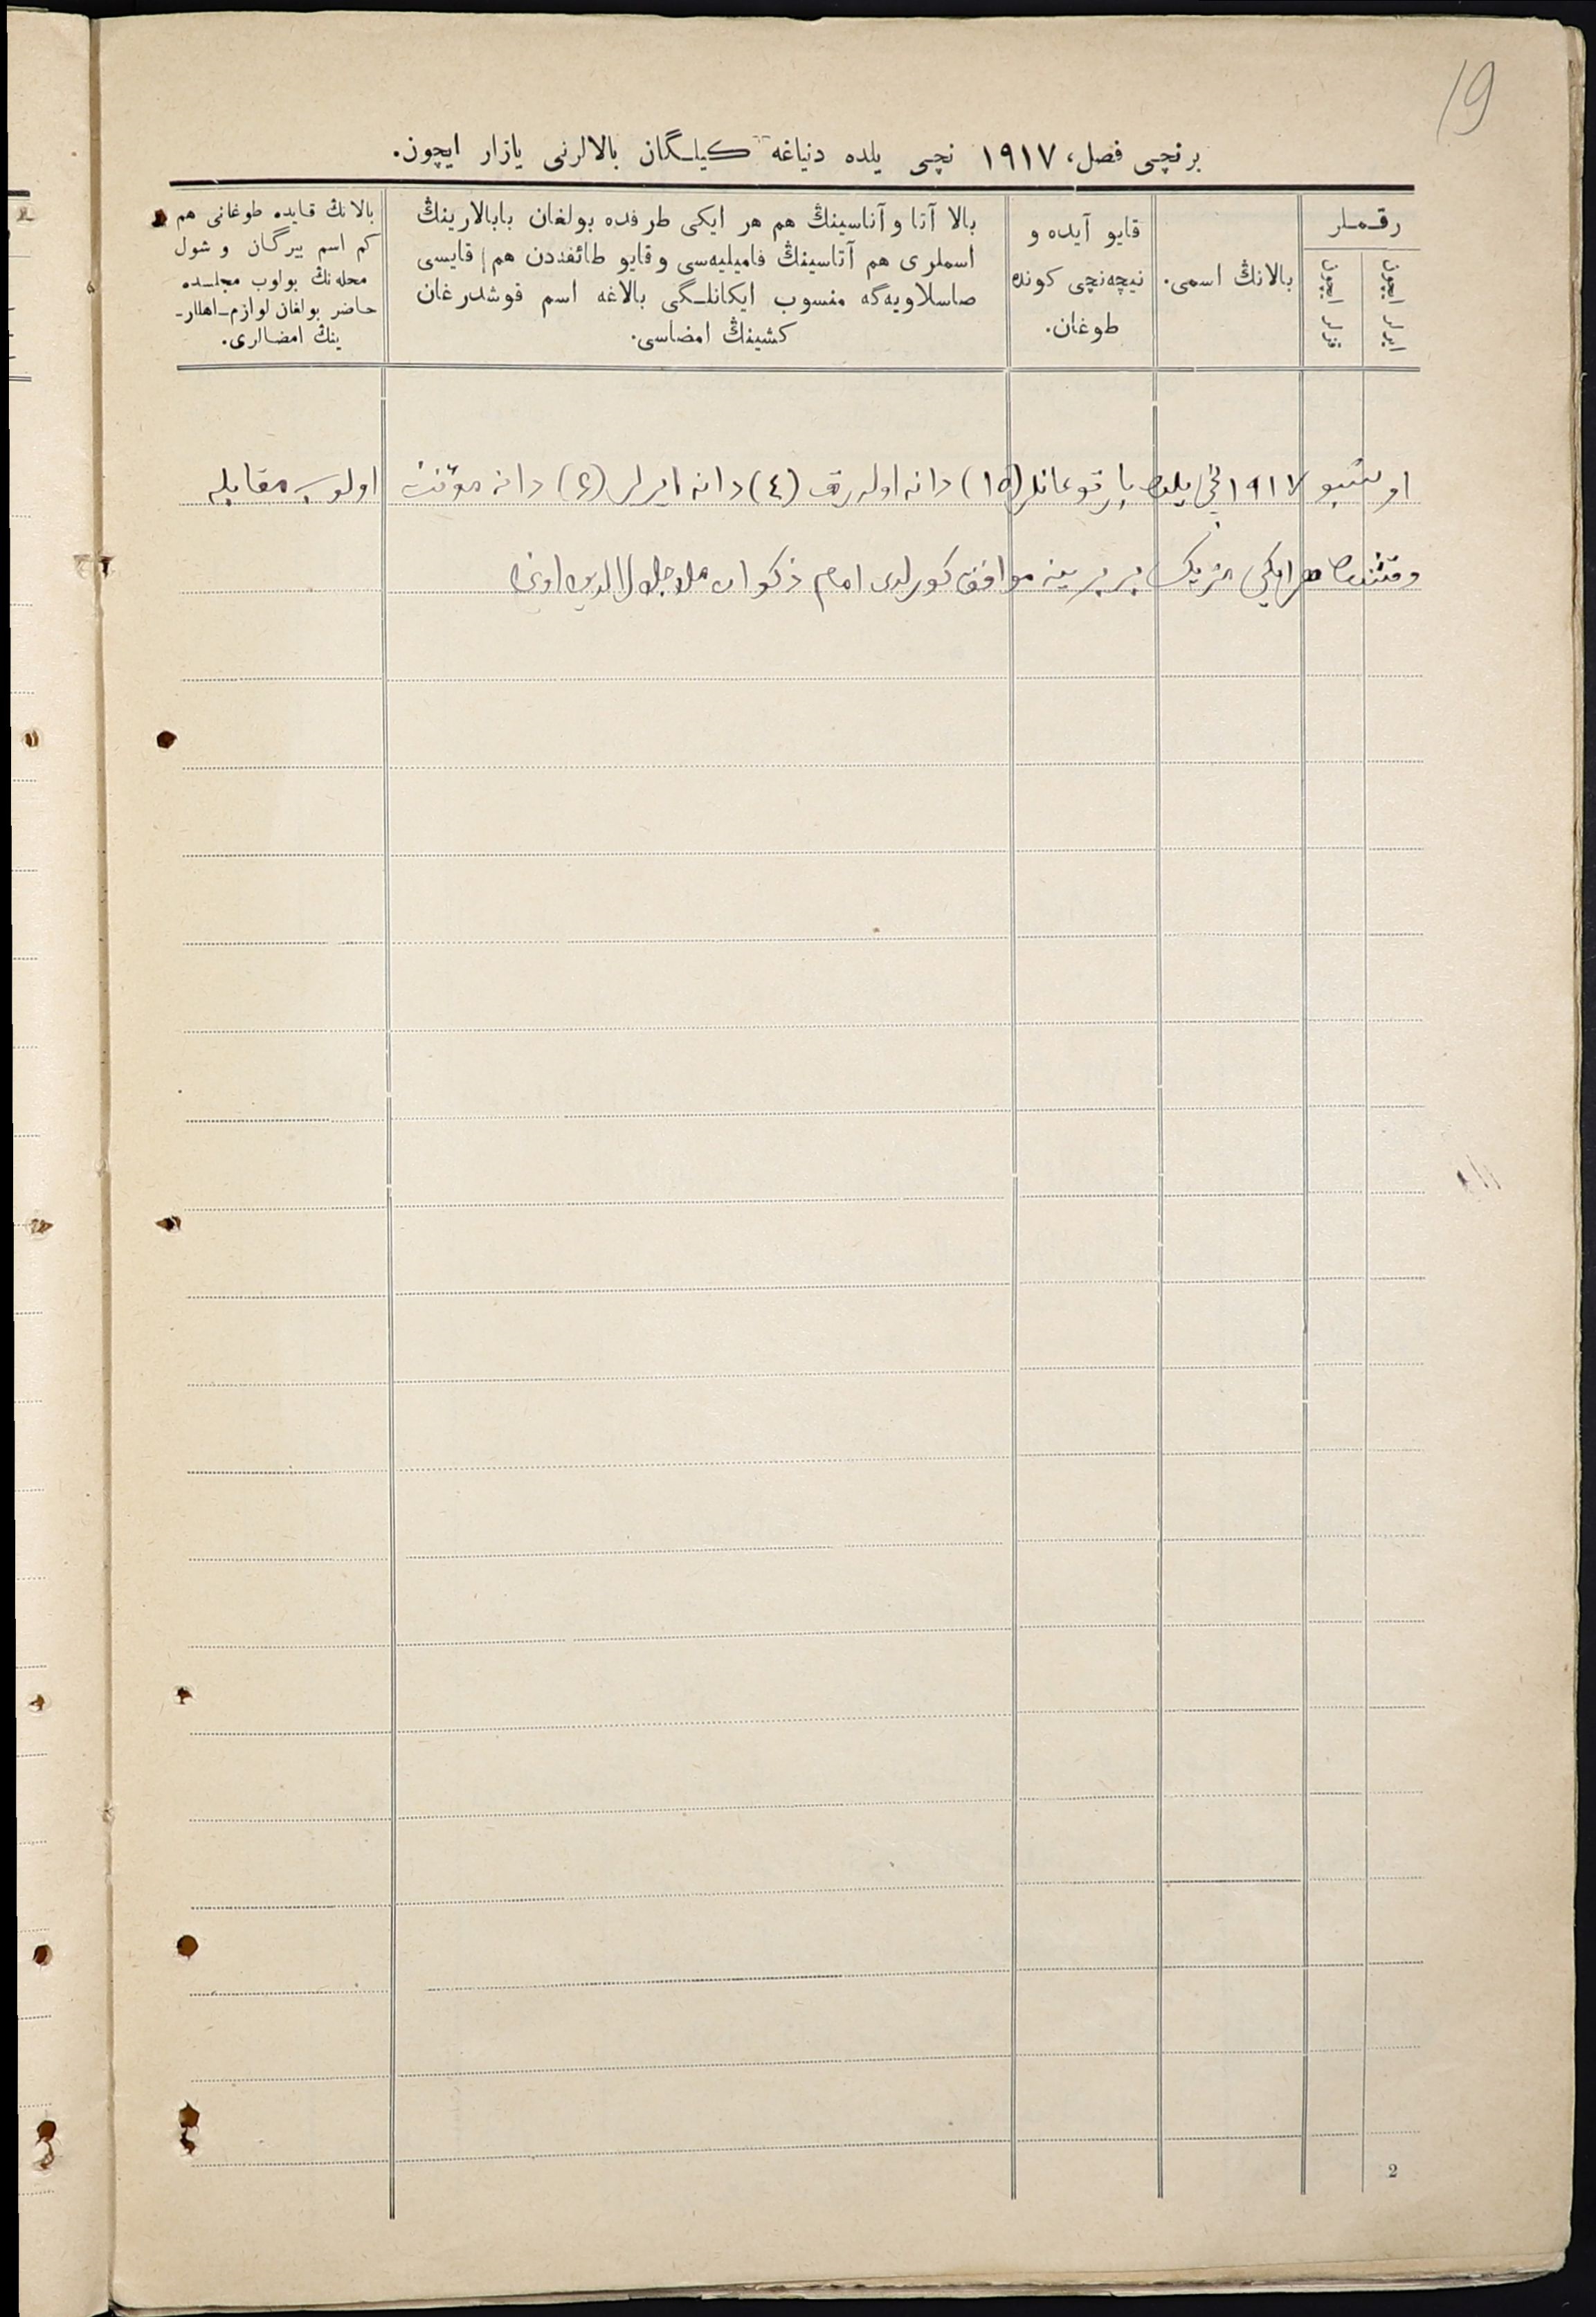 19
برنچی فصل، ١٩١٧ نچی یلده دنیاغه كیلـگان بالالرنی یازار ایچون.
رقـملر
ایرلر ایچون
قزلر ایچون
بالانڭ اسمی.
قایو آیده و
نیچه‌نچی كونده
طوغان.
بالا آتا و آناسینڭ هم هر ایكی طرفده بولغان بابالارینڭ
اسملری هم آتاسینڭ فامیلیه‌سی و قایو طائفه‌دن هم قایسی
صاسلاویه‌گه منسوب ایكانلـگی بالاغه اسم قوشدرغان
كشینڭ امضاسی.
بالانڭ قایده طوغانی هم
كم اسم بیرگان و شول
محله‌نڭ بولوب مجلـسده
حاضر بولغان لوازم‌ـاهللر‌ـ
ینڭ امضالری.
اوشبو ١٩١٧ نچی یلده بارتوغانلر (١٥) دانه اوله‌رق (٤) دانه ایرلر دانه مؤنث اولوب مقابله
هر ایكی بر برینه موافق كورلدی امام ملا جلال الدین
2